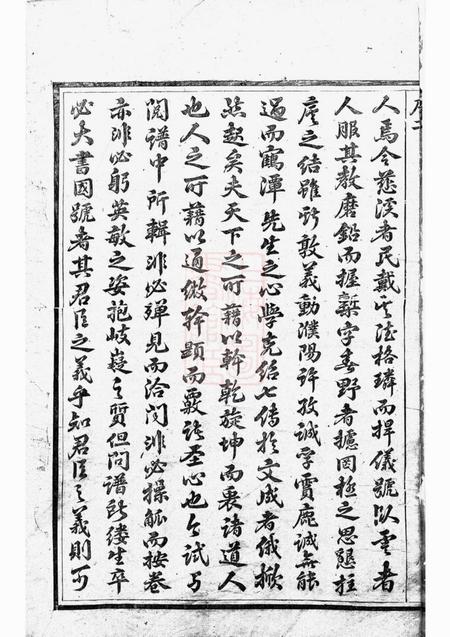 人焉令慈溪者民戴其德格璘而捍儀號臥雲者
人服其教磨鉛而握槧字春野者據罔極之思懸拄
席之結雖所敦義動濮陽許孜誠孚霣鹿誠無能
過而鶴潭先生之心學克紹七傳於文成者俄撽
然起矣夫天下之可藉以幹乾旋坤而衷諸道人
也人之可藉以通微幹顯而覈諸聖心也今試与
閱譜中所輯非必殫見而洽聞非必操觚而按卷
亦非必躬英敏之姿抱岐嶷之質但問譜所縷生卒
必大書國號者其君臣之義乎知君臣之義則可